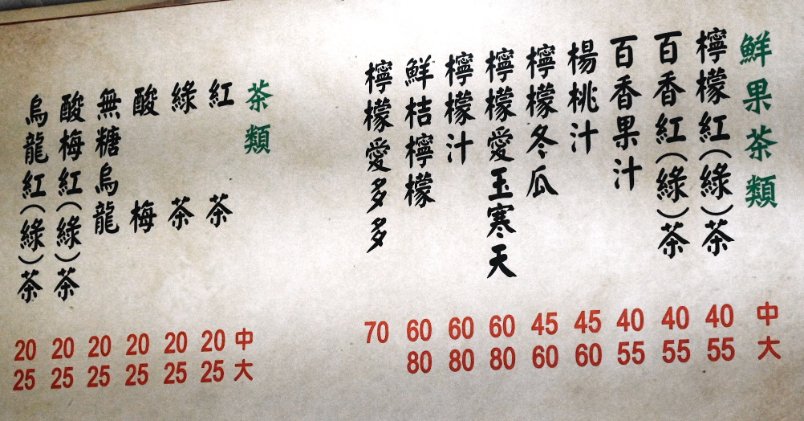 鮮果茶類 中 大
檸檬紅(綠)茶 40 55
百香紅(綠)茶 40 55
百香果汁 40 55
楊桃汁 45 60
檸檬冬瓜 45 60
檸檬愛玉寒天 60 80
檸檬汁 60 80
鮮桔檸檬 60 80
檸檬愛多多 70
茶類 中 大
紅茶 20 25
綠茶 20 25
酸梅 20 25
無糖烏龍 20 25
酸梅紅(綠)茶 20 25
烏龍紅(綠)茶 20 25